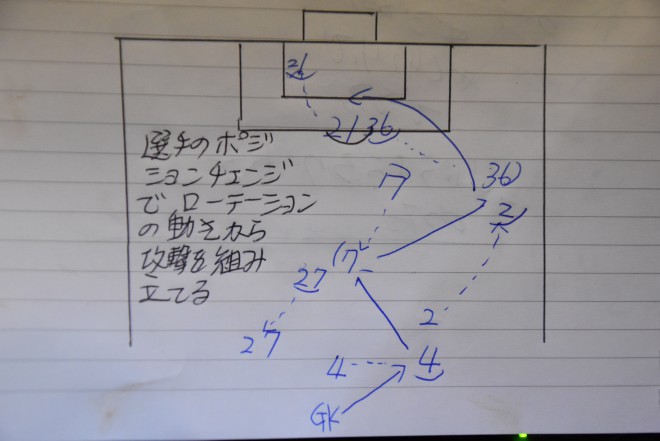 21
21 36
選手のポジ
ションチェンジ
でローテーション
の動きから
攻撃を組み
立てる
17
36
2
17
27
27
2
4
4
GK